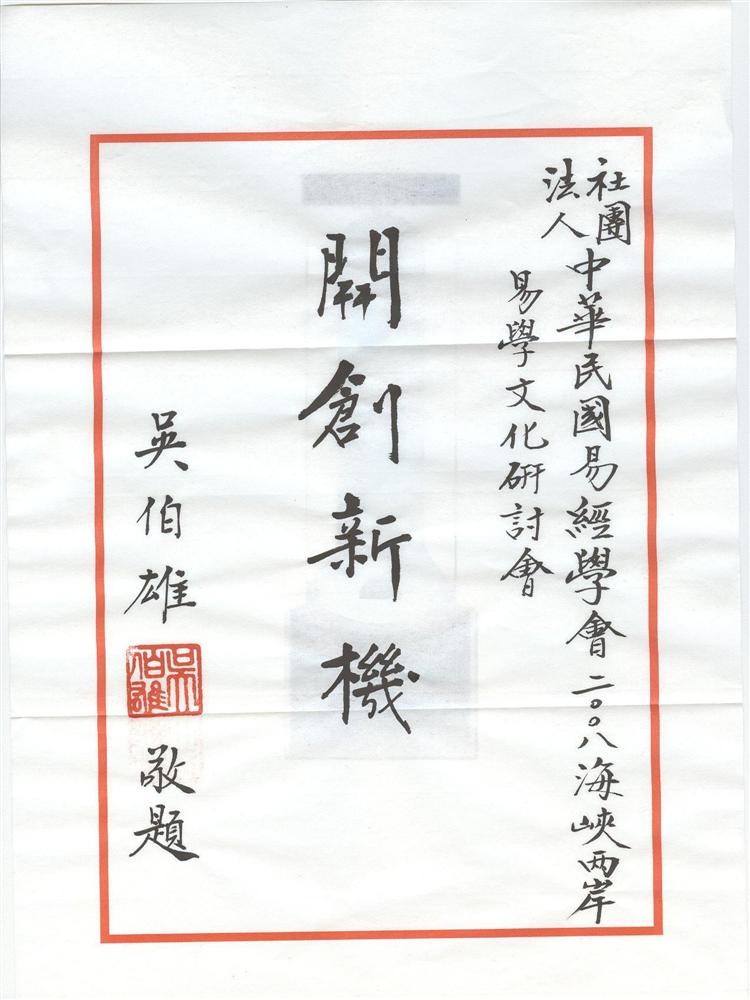 社團法人中華民國易經學會二〇〇八海峽兩岸
易學文化研討會
開創新機
吳伯雄
吳伯雄
敬題